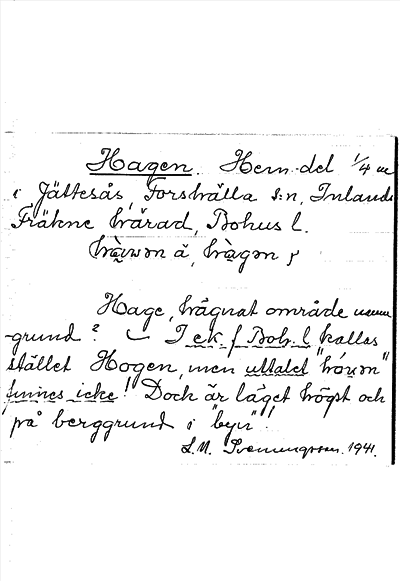 Hagen. Hem. del 1/4 m
i Jättesås, Forshälla s:n, Inlands
Fräkne härad, Bohus l.
hàwən ǎ, hàgən ɼ
Hage, hägnat område
grund? I ek. f Boh. l kallas
stället Hogen, men uttalet "hówən"
finnes icke! Dock är läget högst och
på berggrund i "byn"!
S.M. Svenungsson. 1941.